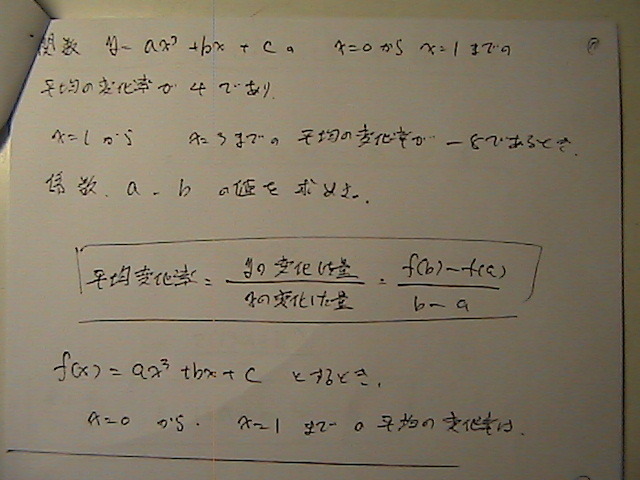 関数 y = ax³ + bx + c の x=0 から x=1 までの
平均の変化率が 4 であり
x=1 から x=3 までの 平均の変化率が -8 であるとき.
係数. a. b の値を求めよ.
平均変化率 = yの変化した量 / xの変化した量 = f(b)-f(a) / b-a
f(x) = ax³ + bx + c とするとき.
x=0 から. x=1 までの 平均の変化率は.